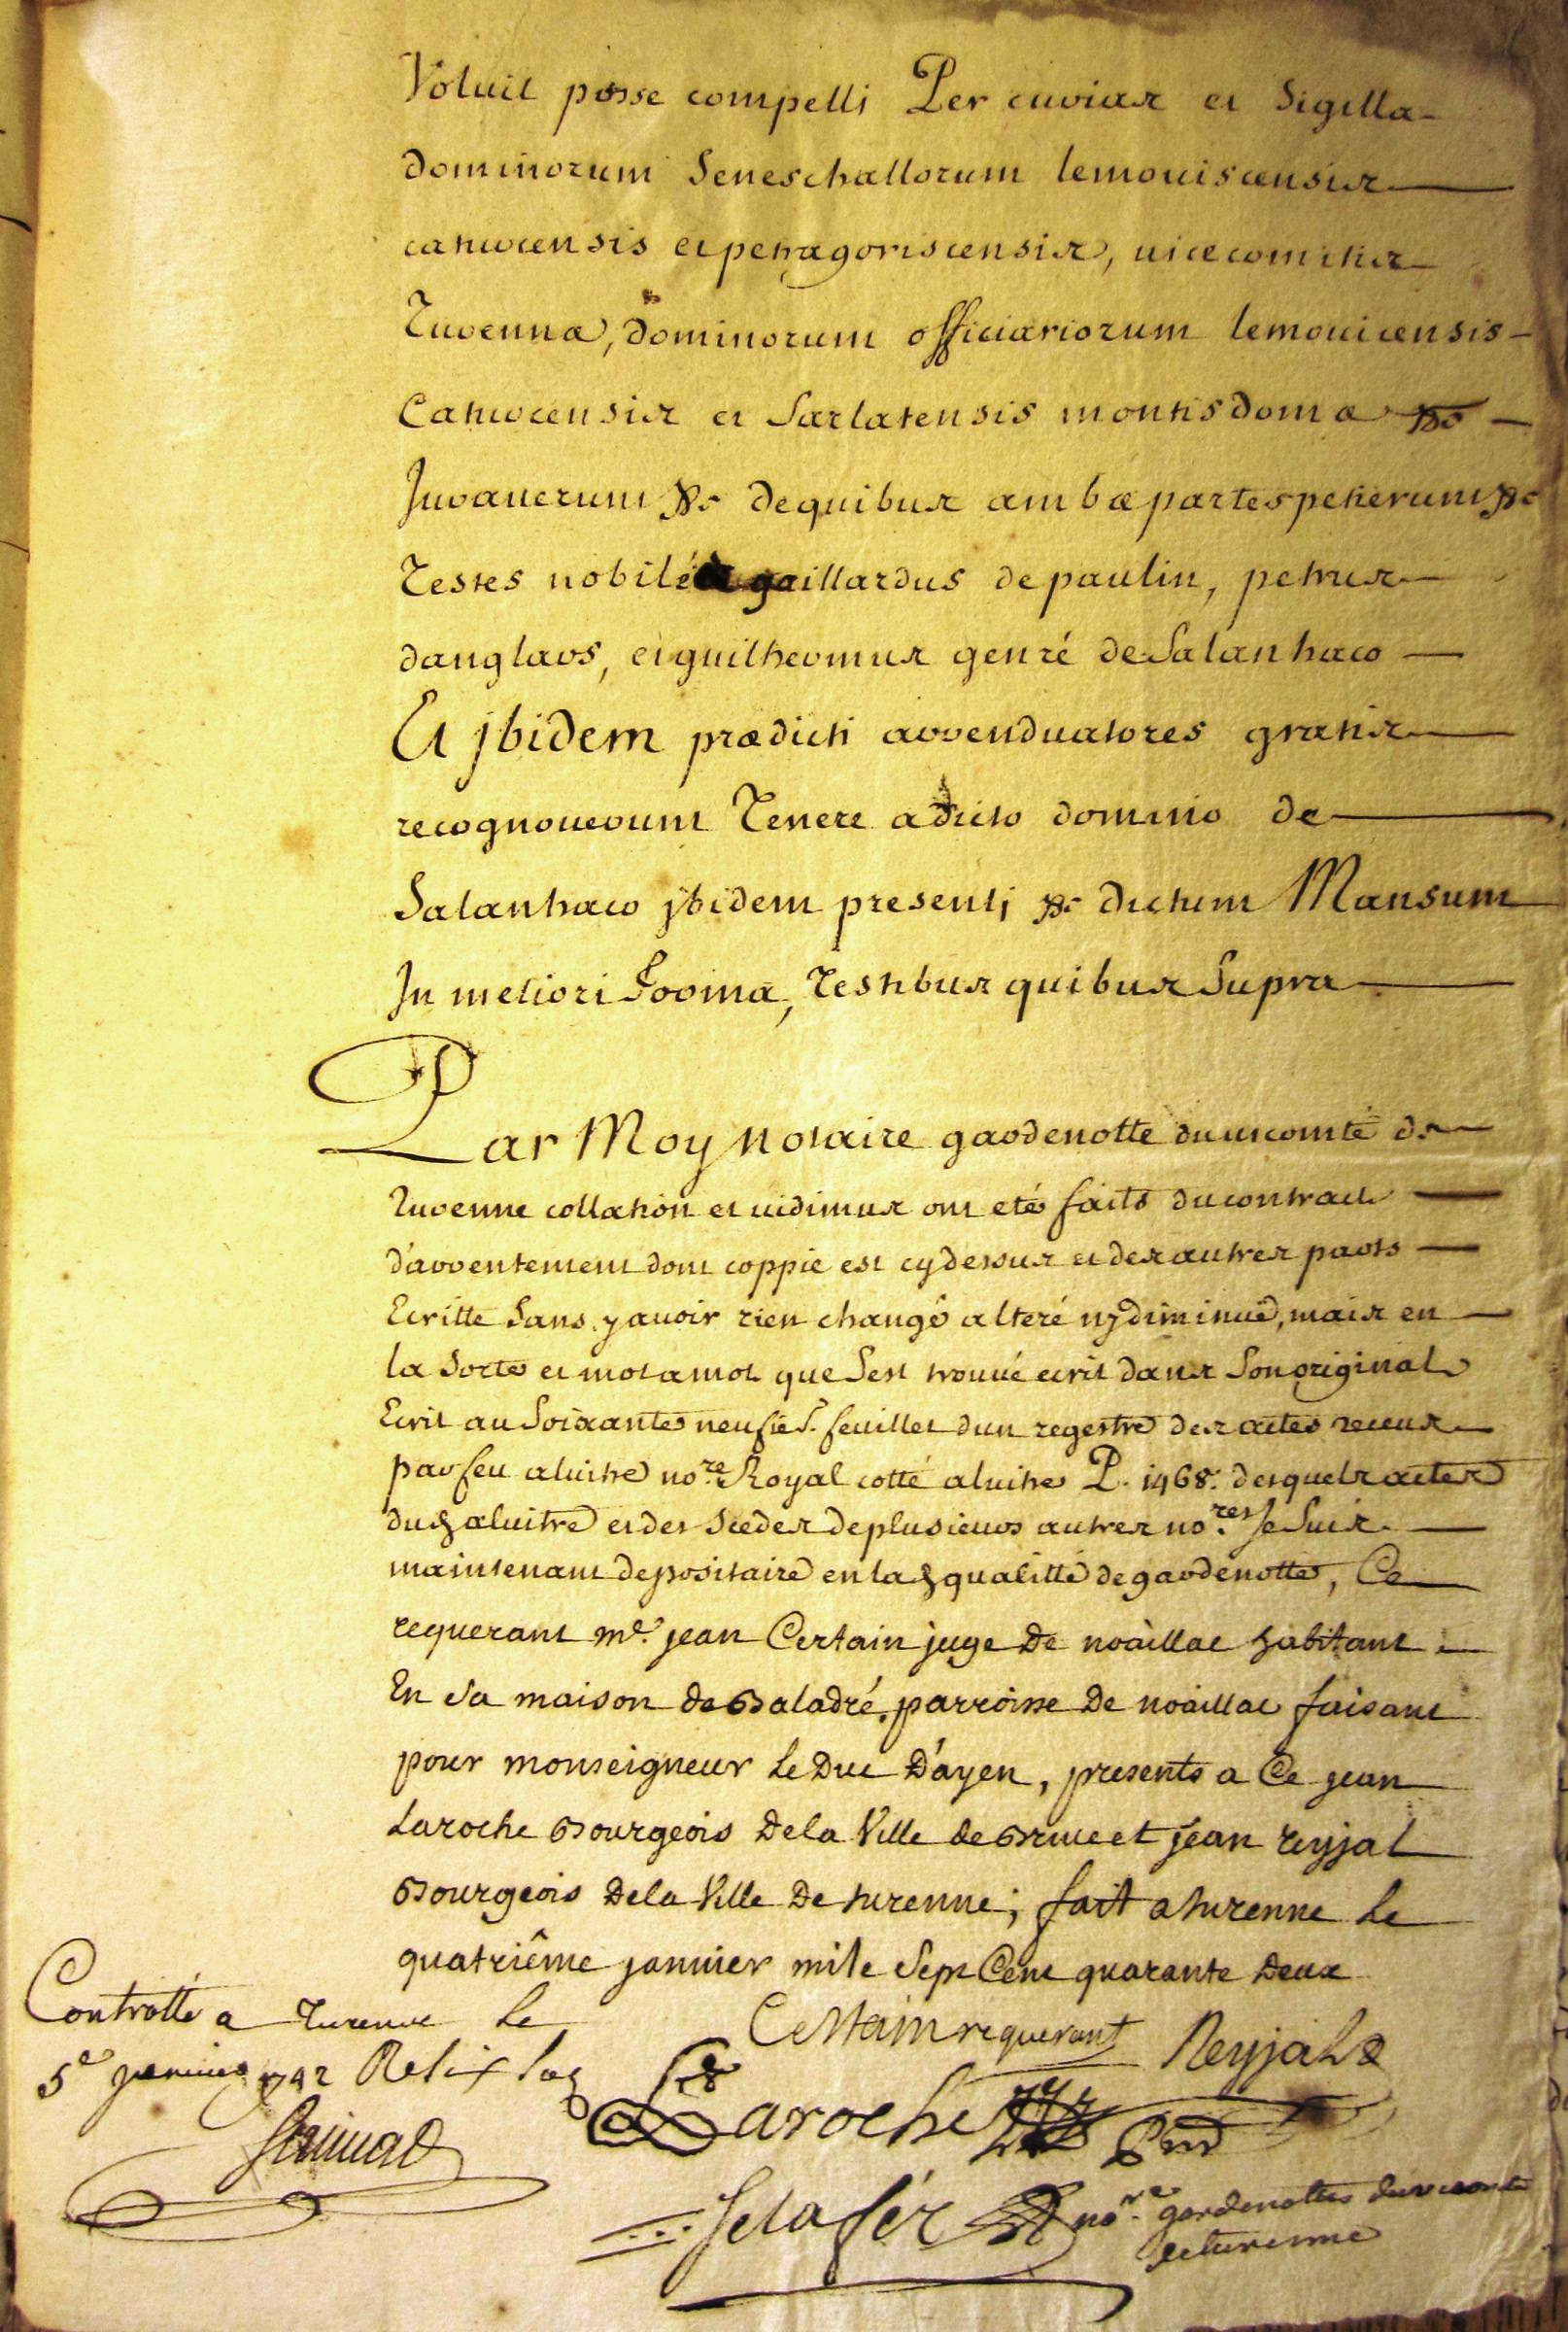 Voluit posse compelli Per curias et Sigilla
dominorum Seneschallorum lemouiscensis
caturcensis et petragoriscensis, uicecomitis
Turennæ, dominorum officiariorum lemouicensis
Caturcensis et Sarlatensis montisdomæ &c
Jurauerunt &c de quibus ambæ partes petierunt &c
Testes nobilé gaillardus de paulin, petrus
danglars, et guilhermus genré de Salanhaco
Et jbidem prædicti arrenduatores gratis
recognouerunt Tenere a dicto domino de
Salanhaco jbidem presenti &c dictum Mansum
In meliori forma, Testibus quibus Supra
Par Moy Notaire gardenotte du uicomté de
Turenne collation et uidimus ont eté faits du contract
d'arrentement dont coppie est cy dessus et des autres parts
Ecritte Sans y auoir rien changé alteré ny diminué, mais en
la Sorte et mot a mot que Sest trouué ecrit dans Son original
Ecrit au Soixante neufie.^ feuillet dun regestre des actes receus
par feu aluitre no.re Royal cotté aluitre P. 1468. desquels actes
du aluitre et des scedes de plusieurs autres no.res Je Suis
maintenant depositaire en la qualitté de gardenotte, Ce
requerant me. jean Certain juge de noaillac habitant
En sa maison de Baladré parroisse de noaillac faisant
pour monseigneur Le Duc D'ayen, presents a Ce jean
Laroche Bourgeois de la Ville de Brive et jean reyjal
Bourgeois de la Ville de turenne; fait a turenne Le
quatriême janvier mile Sept Cent quarante deux
Certain requerant Reyjal
Controllé a Turenne Le
5e janvier 1742
Laroche
no.re gardenottes du vicomté
de turenne